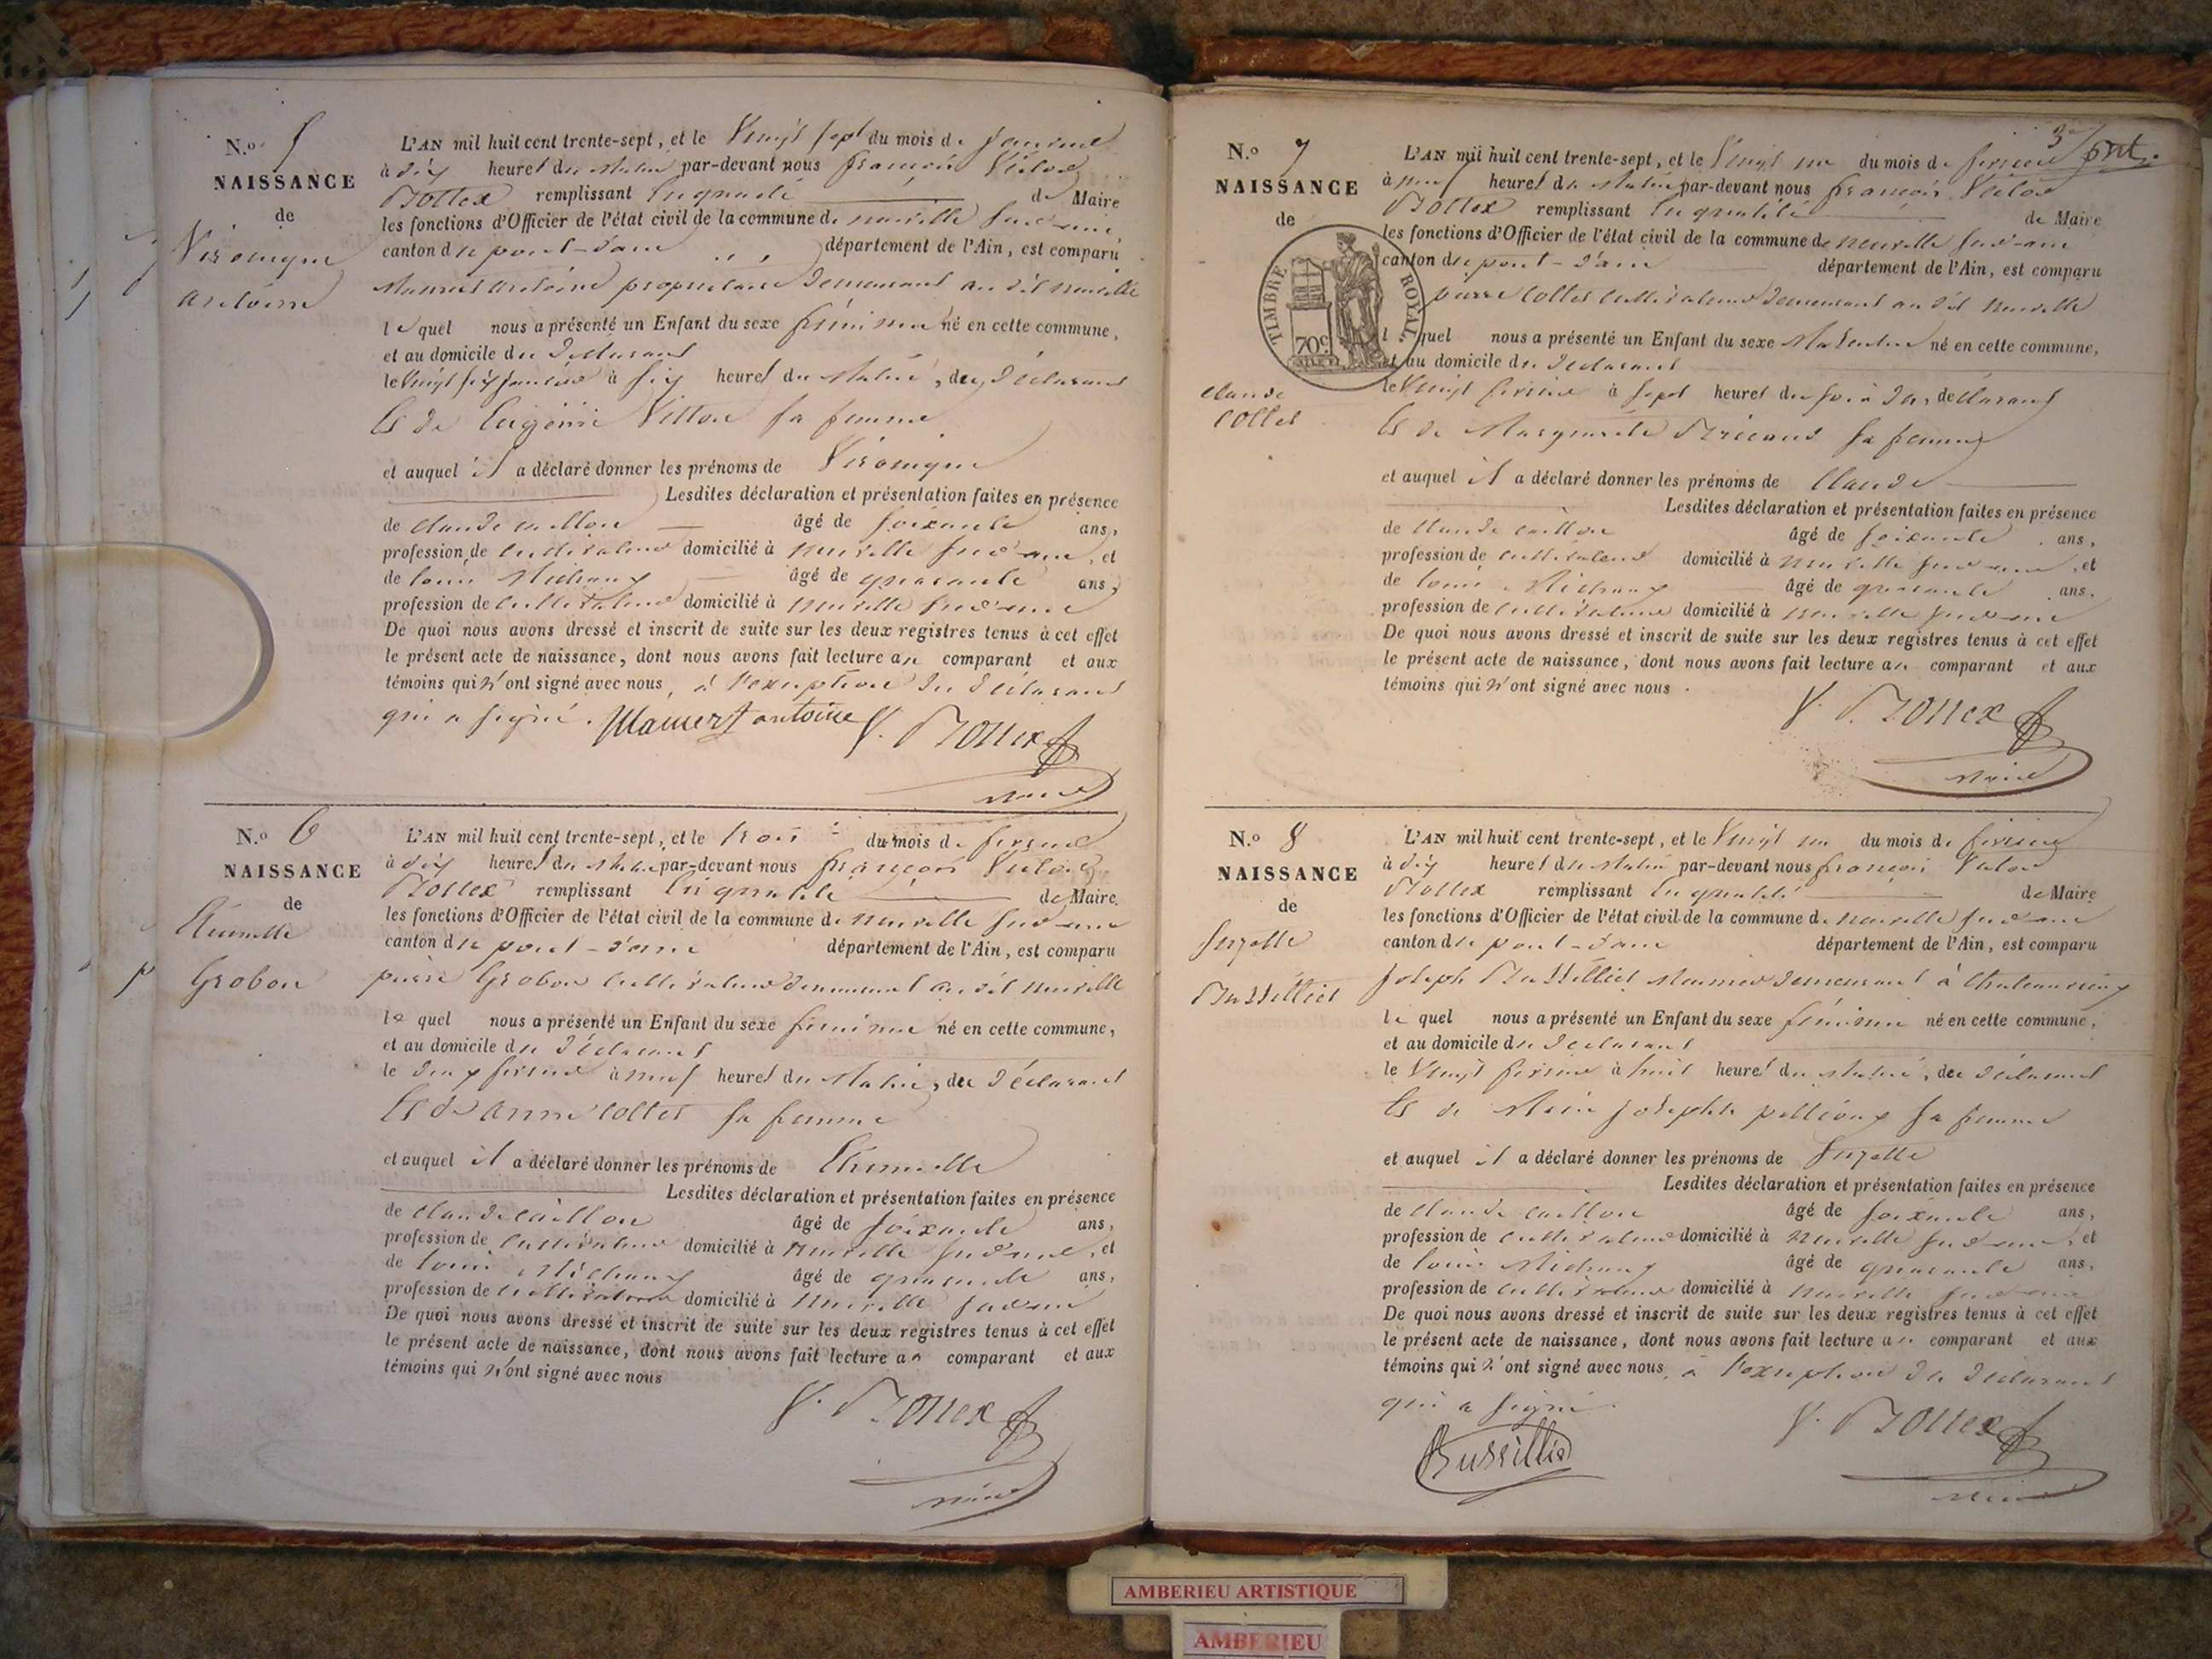 N.o 5
NAISSANCE
de
Véronique
antoine
L'AN mil huit cent trente-sept, et le Vingt sept du mois de janvier
à dix heures du Matin par-devant nous françois Victor
Bottex remplissant En qualité de Maire
les fonctions d'Officier de l'état civil de la commune de neuville sur ain
canton de pont-d'ain département de l'Ain, est comparu
Mamert antoine propriétaire Demeurant au dit neuville
le quel nous a présenté un Enfant du sexe féminin né en cette commune,
et au domicile du Déclarant
le Vingt six janvier à six heures du Matin, du Déclarant
Et de Eugénie Vitton sa femme
et auquel il a déclaré donner les prénoms de Véronique
Lesdites déclaration et présentation faites en présence
de claude caillon âgé de soixante ans,
profession de cultivateur domicilié à neuville sur ain, et
de louis Michaux âgé de quarante ans,
profession de cultivateur domicilié à neuville sur ain
De quoi nous avons dressé et inscrit de suite sur les deux registres tenus à cet effet
le présent acte de naissance, dont nous avons fait lecture au comparant et aux
témoins qui n'ont signé avec nous, à l'exception du Déclarant
qui a signé. Mamert antoine V. Bottex
maire
N.o 6
NAISSANCE
de
Etiennette
Grobon
L'AN mil huit cent trente-sept, et le trois du mois de février
à dix heures du Matin par-devant nous françois Victor
Bottex remplissant En qualité de Maire
les fonctions d'Officier de l'état civil de la commune de neuville sur ain
canton de pont-d'ain département de l'Ain, est comparu
pierre Grobon cultivateur demeurant au dit neuville
le quel nous a présenté un Enfant du sexe féminin né en cette commune,
et au domicile du Déclarant
le deux février à neuf heures du Matin, du Déclarant
Et de anne collet sa femme
et auquel il a déclaré donner les prénoms de Etiennette
Lesdites déclaration et présentation faites en présence
de claude caillon âgé de soixante ans,
profession de cultivateur domicilié à neuville sur ain, et
de louis Michaux âgé de quarante ans,
profession de cultivateur domicilié à neuville sur ain
De quoi nous avons dressé et inscrit de suite sur les deux registres tenus à cet effet
le présent acte de naissance, dont nous avons fait lecture au comparant et aux
témoins qui n'ont signé avec nous
V. Bottex
maire
N.o 7
NAISSANCE
de
TIMBRE ROYAL
70c
claude
collet
L'AN mil huit cent trente-sept, et le Vingt un du mois de février
à neuf heures du Matin par-devant nous françois Victor
Bottex remplissant En qualité de Maire
les fonctions d'Officier de l'état civil de la commune de neuville sur ain
canton de pont-d'ain département de l'Ain, est comparu
pierre collet cultivateur demeurant au dit neuville
lequel nous a présenté un Enfant du sexe Masculin né en cette commune,
et au domicile du Déclarant
le Vingt février à sept heures du soir du déclarant
Et de Marguerite sa femme
et auquel il a déclaré donner les prénoms de Claude
Lesdites déclaration et présentation faites en présence
de claude caillon âgé de soixante ans,
profession de cultivateur domicilié à neuville sur ain, et
de louis Michaux âgé de quarante ans.
profession de cultivateur domicilié à neuville sur ain
De quoi nous avons dressé et inscrit de suite sur les deux registres tenus à cet effet
le présent acte de naissance, dont nous avons fait lecture au comparant et aux
témoins qui n'ont signé avec nous.
V. Bottex
maire
N.o 8
NAISSANCE
de
Suzette
Bussilliet
L'AN mil huit cent trente-sept, et le Vingt un du mois de février
à dix heures du Matin par-devant nous françois Victor
Bottex remplissant En qualité de Maire
les fonctions d'Officier de l'état civil de la commune de neuville sur ain
canton de pont-d'ain département de l'Ain, est comparu
Joseph Bussilliet Meunier demeurant à Chateauvieux
le quel nous a présenté un Enfant du sexe féminin né en cette commune,
et au domicile du Déclarant
le Vingt février à huit heures du Matin, du Déclarant
Et de Marie josephte sa femme
et auquel il a déclaré donner les prénoms de Suzette
Lesdites déclaration et présentation faites en présence
de claude caillon âgé de soixante ans,
profession de cultivateur domicilié à neuville sur ain, et
de louis Michaux âgé de quarante ans,
profession de cultivateur domicilié à neuville sur ain
De quoi nous avons dressé et inscrit de suite sur les deux registres tenus à cet effet
le présent acte de naissance, dont nous avons fait lecture au comparant et aux
témoins qui n'ont signé avec nous, à l'exception du Déclarant
qui a signé.
Bussilliet V. Bottex
maire
AMBERIEU ARTISTIQUE
AMBERIEU